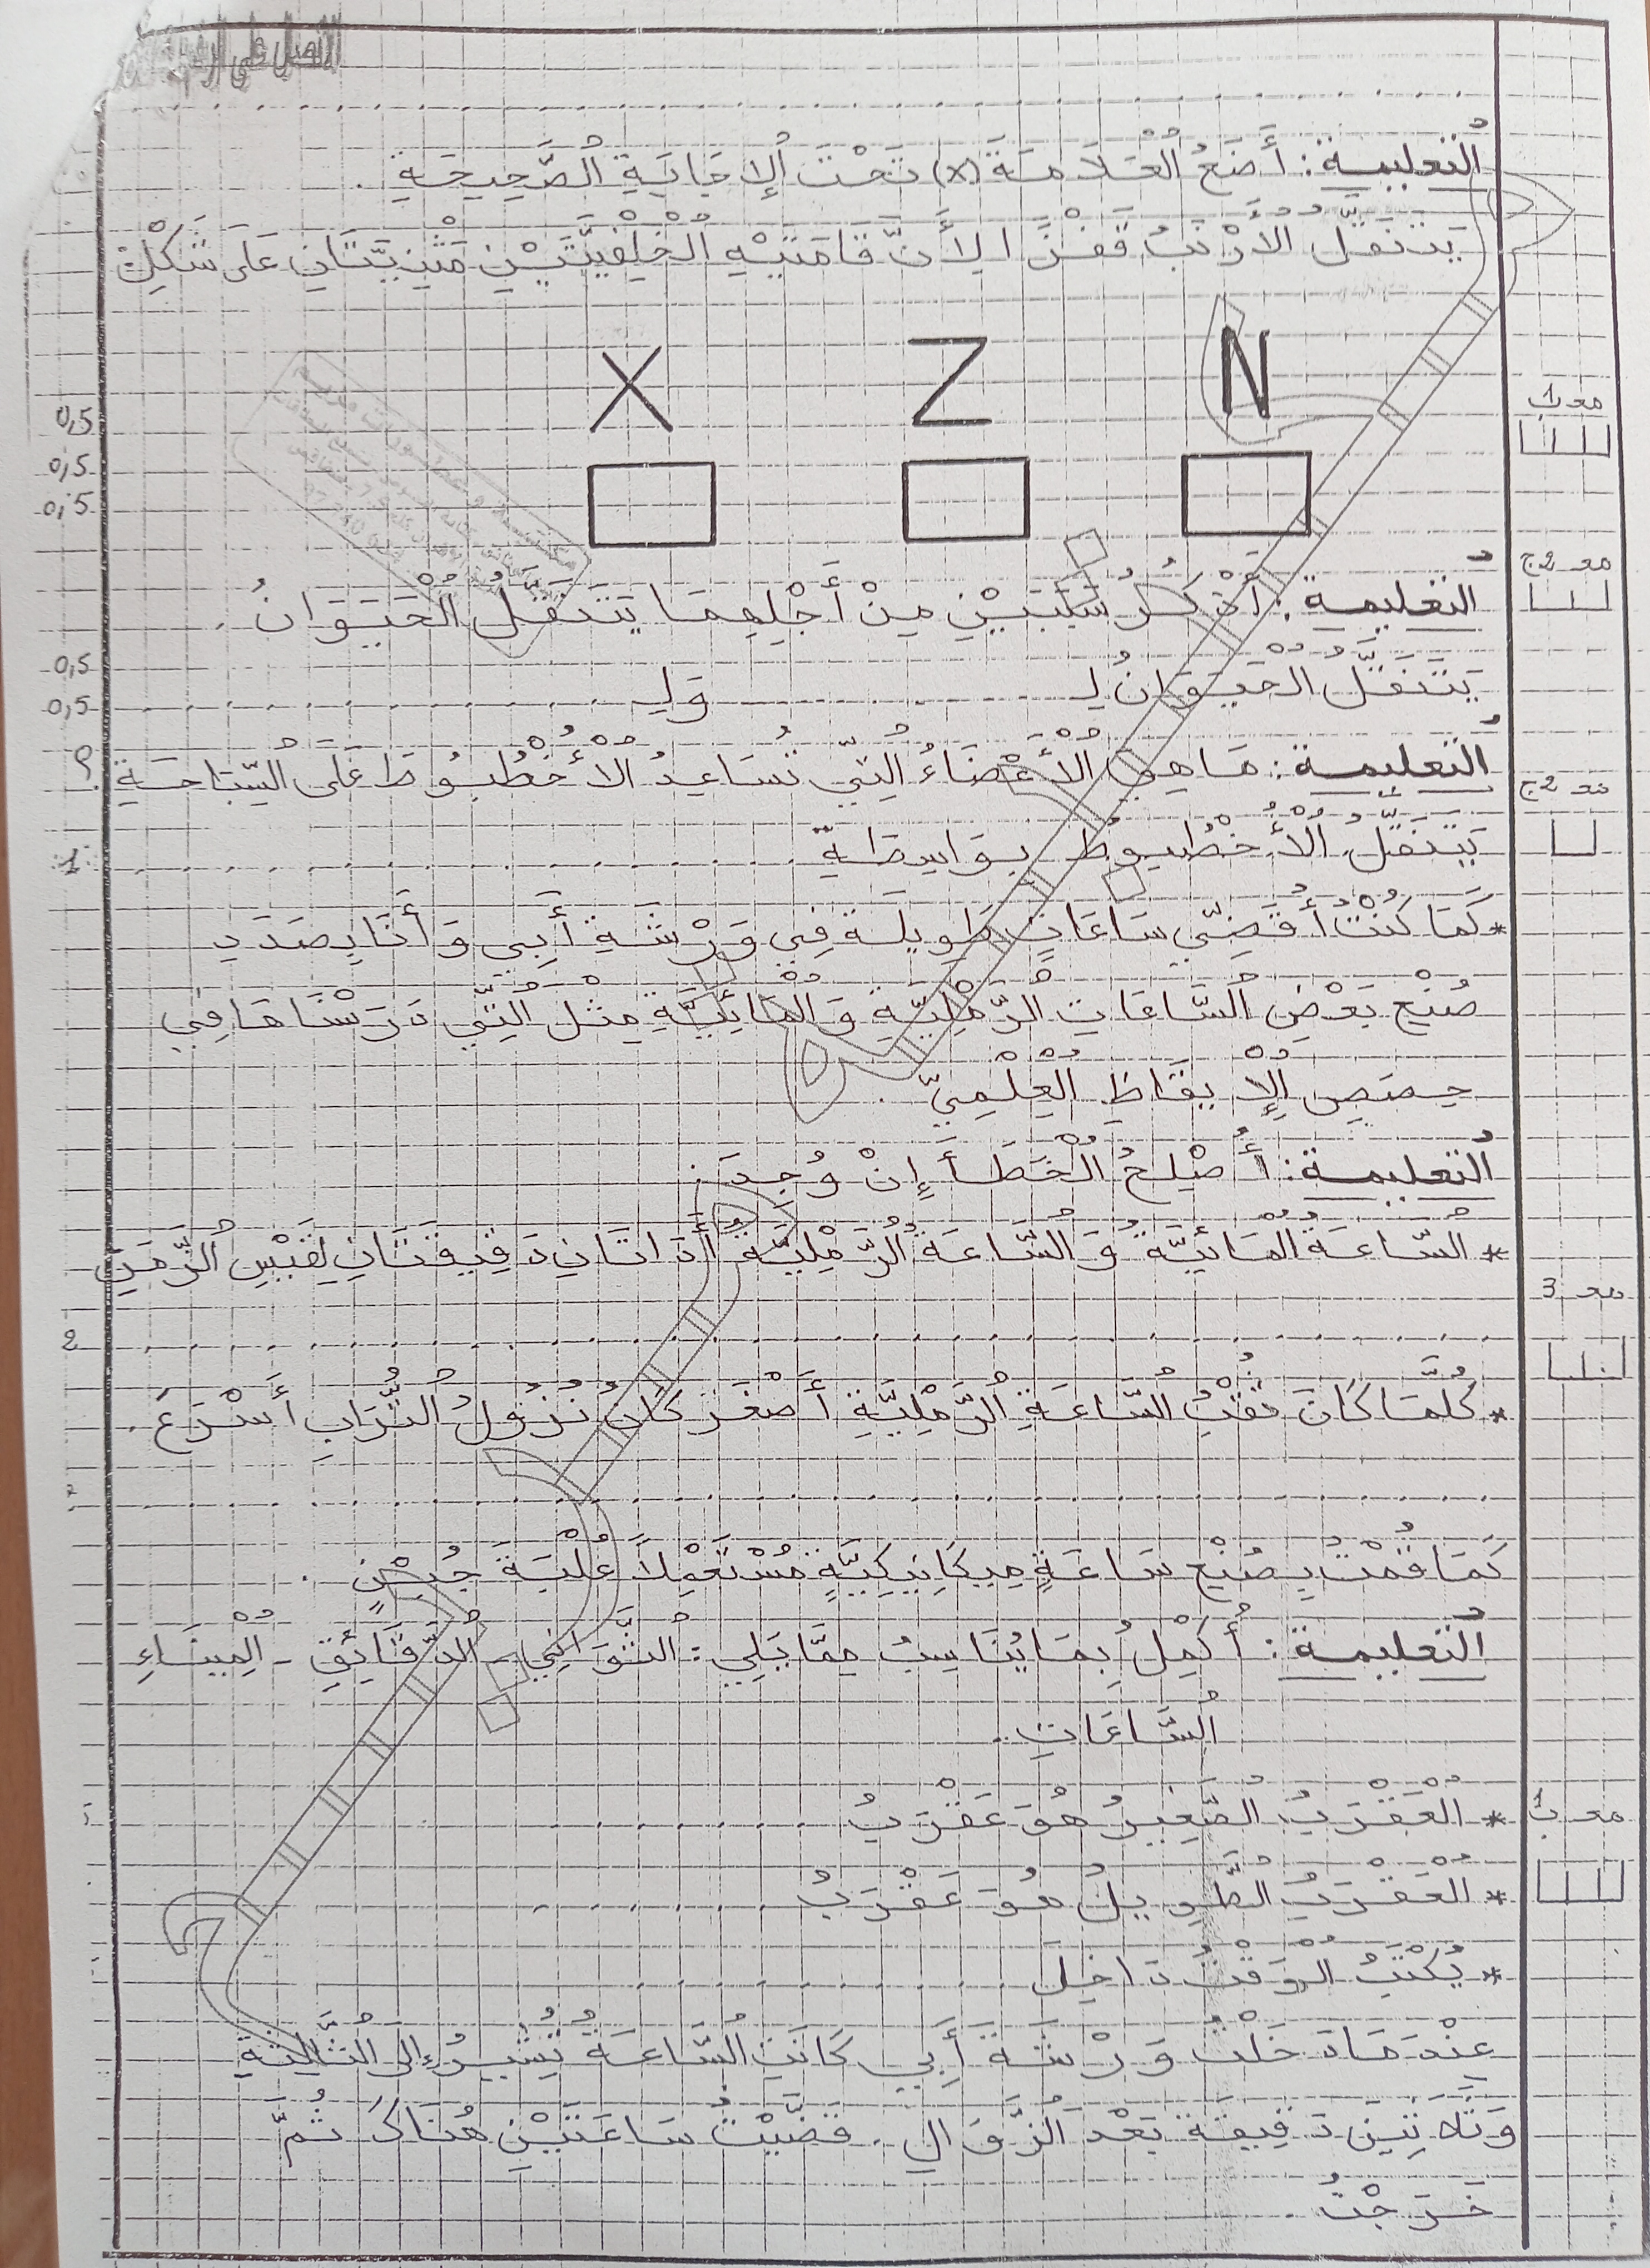 التعليمة: أَضَعُ الْعَلَامَةَ (x) تَحْتَ الْإِجَابَةِ الصَّحِيحَةِ .
يَتَنَقَّلُ الْأَرْنَبُ قَفْزًا لِأَنَّ قَامَتَيْهِ الْخَلْفِيَّتَيْنِ مَثْنِيَّتَانِ عَلَى شَكْلِ
N Z X
مع 1
0,5
0,5
0,5
مع 2ج
التعليمة: أَذْكُرُ سَبَبَيْنِ مِنْ أَجْلِهِمَا يَتَنَقَّلُ الْحَيَوَانُ .
يَتَنَقَّلُ الْحَيَوَانُ لِـ .......... وَلِـ ..........
0,5
0,5
التعليمة: مَا هِيَ الْأَعْضَاءُ الَّتِي تُسَاعِدُ الْأُخْطُبُوطَ عَلَى السِّبَاحَةِ ؟
مع 2ج
يَتَنَقَّلُ الْأُخْطُبُوطُ بِوَاسِطَةِ ..........
1
* كَمَا كُنْتُ أُقَضِّي سَاعَاتٍ طَوِيلَةٍ فِي وَرْشَةِ أَبِي وَأَنَا بِصَدَدِ
صُنْعِ بَعْضِ السَّاعَاتِ الرَّمْلِيَّةِ وَ الْمَائِيَّةِ مِثْلَ الَّتِي دَرَسْنَاهَا فِي
حِصَصِ الْإِيقَاظِ الْعِلْمِيِّ .
التعليمة: أُصْلِحُ الْخَطَأَ إِنْ وُجِدَ :
* السَّاعَةُ الْمَائِيَّةُ وَ السَّاعَةُ الرَّمْلِيَّةُ أَدَاتَانِ دَقِيقَتَانِ لِقَيْسِ الزَّمَنِ
مع 3
2
* كُلَّمَا كَانَ ثُقْبُ السَّاعَةِ الرَّمْلِيَّةِ أَصْغَرَ كَانَ نُزُولُ التُّرَابِ أَسْرَعَ .
كَمَا قُمْتُ بِصُنْعِ سَاعَةٍ مِيكَانِيكِيَّةٍ مُسْتَعْمِلًا عُلْبَةَ جُبْنٍ .
التعليمة: أُكْمِلُ بِمَا يُنَاسِبُ مِمَّا يَلِي : الثَّوَانِي - الدَّقَائِقِ - الْمِينَاءِ
السَّاعَاتِ .
مع 1
* الْعَقْرَبُ الصَّغِيرُ هُوَ عَقْرَبُ ..........
* الْعَقْرَبُ الطَّوِيلُ هُوَ عَقْرَبُ ..........
* يُكْتَبُ الْوَقْتُ دَاخِلَ ..........
عِنْدَمَا دَخَلْتُ وَرْشَةَ أَبِي كَانَتِ السَّاعَةُ تُشِيرُ إِلَى الثَّالِثَةِ
وَثَلَاثِينَ دَقِيقَةً بَعْدَ الزَّوَالِ . قَضَّيْتُ سَاعَتَيْنِ هُنَاكَ ثُمَّ
خَرَجْتُ .